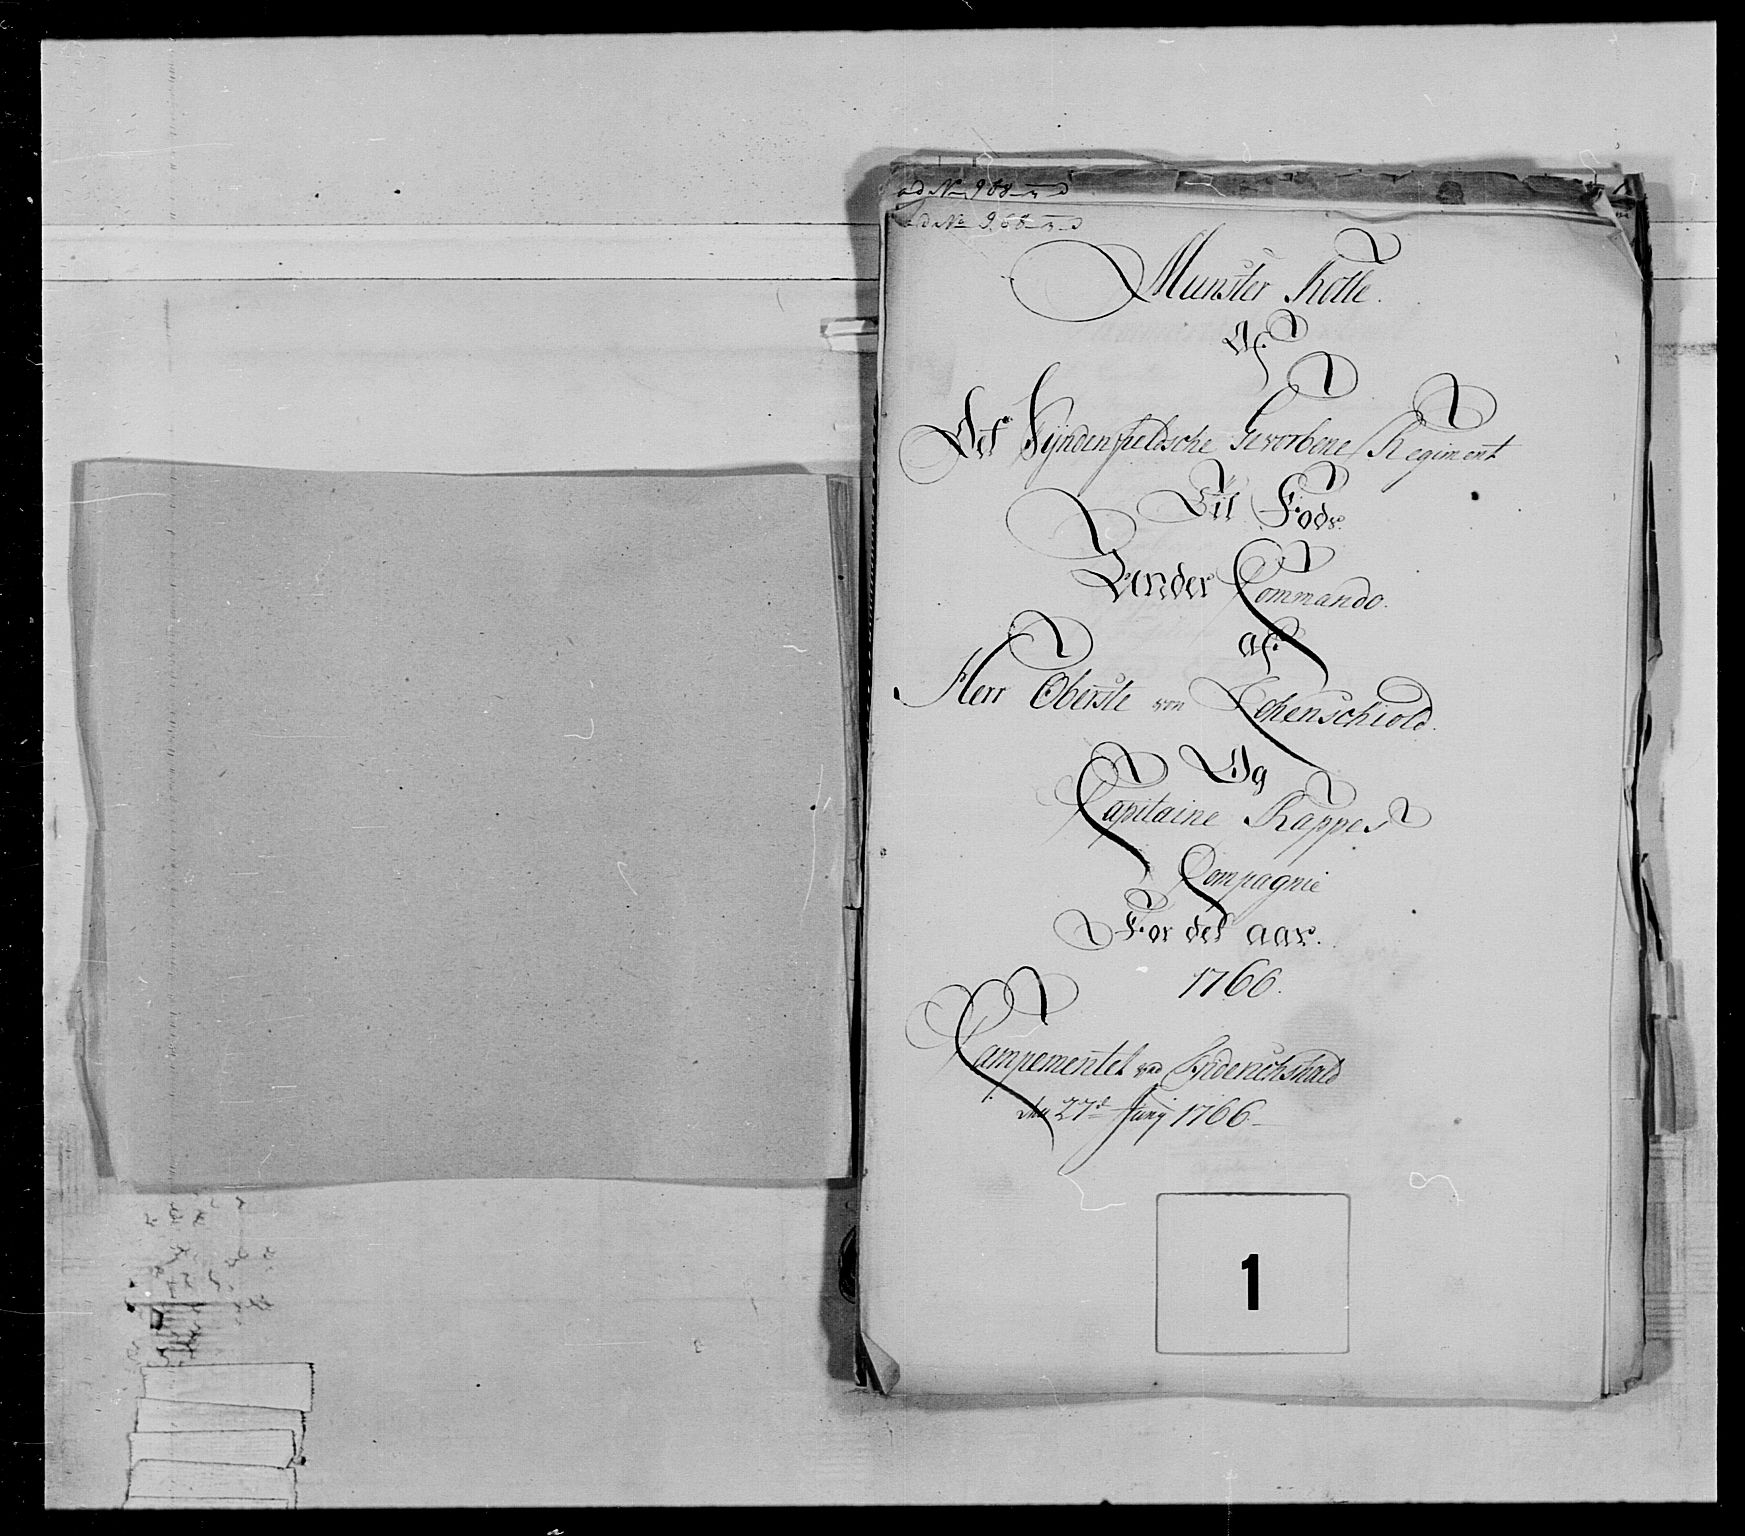 ad No 968
ad No 968
Munster Rolle.
Af
Det Syndenfieldsche Gevorbene Regiment
Til Fods.
Under Commando.
af
Herr Oberste von Lohenschiold.
Og
Capitaine Rappes
Compagnie
For det aar.
1766.
Campementet ved Friderichshald
den 27d Junij 1766
1